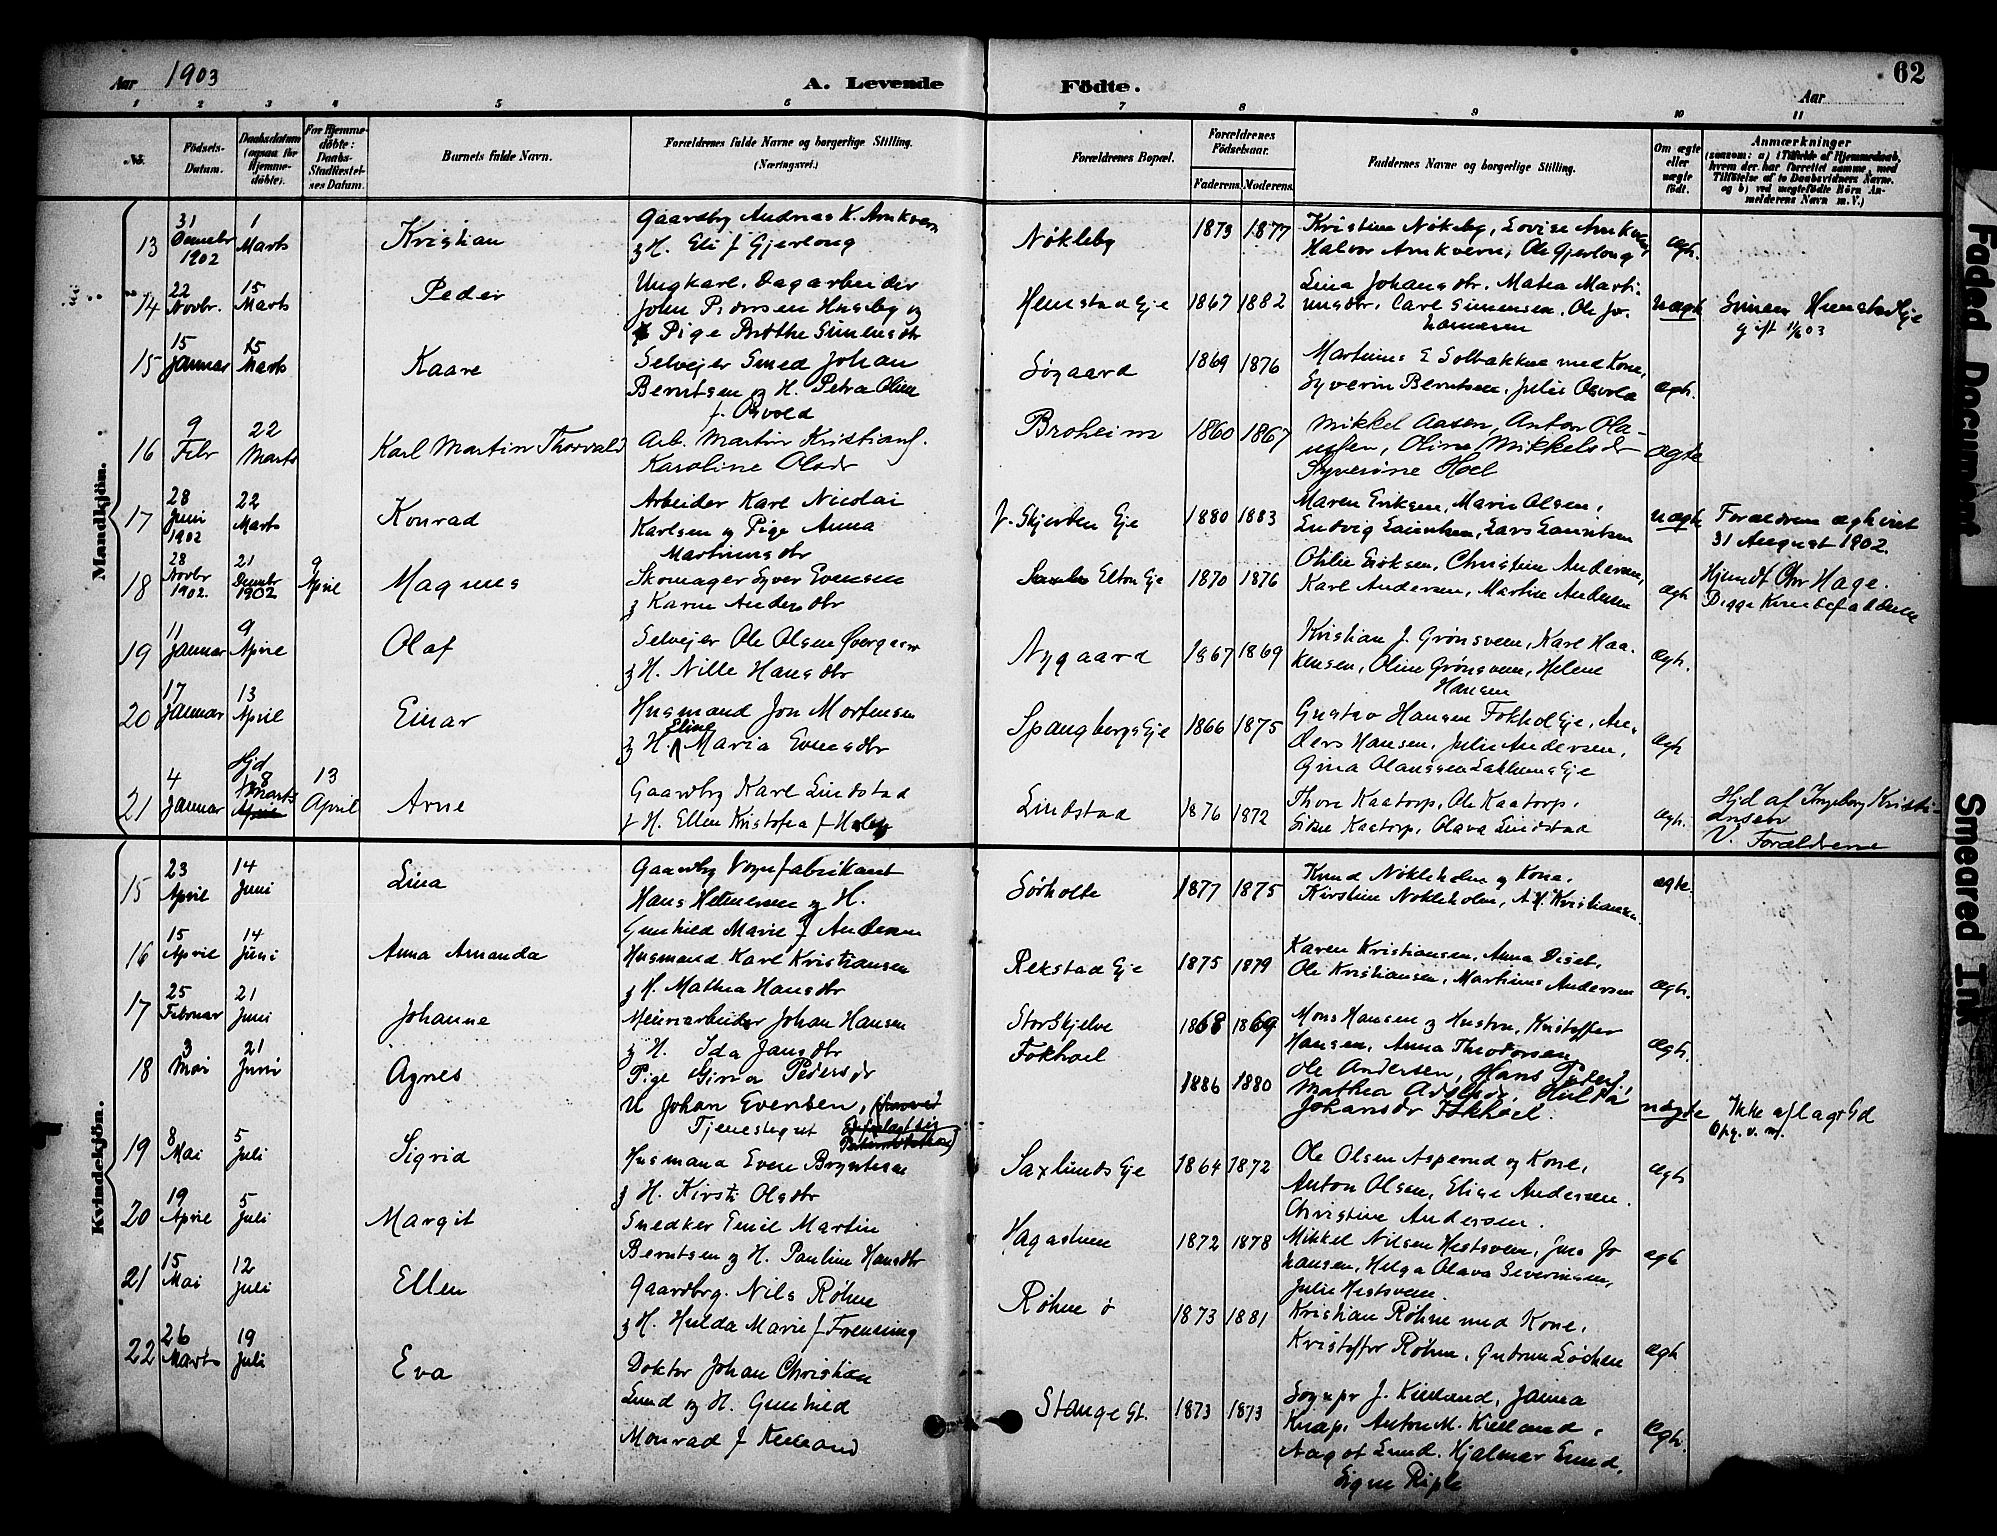 Aar 1903
A. Levende Fødte.
62
Aar
1 2 3 4 5 6 7 8 9 10 11
No.
Fødsels-Datum.
Daabsdatum (ogsaa for Hjemmedøbte).
For Hjemmedøbte: Daabs-Stadfæstelses Datum.
Barnets fulde Navn.
Forældrenes fulde Navne og borgerlige Stilling.
(Næringsvei.)
Forældrenes Bopæl.
Forældrenes Fødselsaar.
Faderens. Moderens.
Faddernes Navne og borgerlige Stilling.
Om ægte eller uægte født.
Anmærkninger
(saasom: a) i Tilfælde af Hjemmedaab, hvem der har forrettet samme, med Tilføielse af to Daabsvidners Navne, og b) ved uegtefødte Børn Anmelderens Navn m. V.)
Mandkjøn.
13
31 Decmbr 1902
1 Marts
Kristian
Gaardbr Andreas K. Arnkvern
& H. Eli f Gjerlong
Nøkleby
1873 1877
Kristine Nøkleby, Lovise Arnkvern
Halvor Arnkvern, Ole Gjerlong
ægt.
14
22 Novbr.
15 Marts
Peder
Ungkarl, Dagarbeider
John Pedersen Huseby og
Pige Berthe Simensdtr
Hemstad Eje
1867 1882
Lina Johansdtr. Matea Marti-
nusdtr. Carl Simensen, Ole Jo-
hannesen
Uægte
Simen Hemstad Eje
gift 1/6 03
15
15 Januar
15 Marts
Kaare
Selvejer Smed Johan
Berntsen og H. Petra Oline
f. Osvold
Søgaard
1869 1876
Martinus E Solbakken med Kone,
Syverin Berntsen, Julie Osvold
ægt.
16
9 Febr
22 Marts
Karl Martin Thorvald
Arb. Martin Kristians.
Karoline Olsdr
Broheim
1860 1867
Mikkel Aasen, Anton Ola-
ussen, Oline Mikkelsdr
Syverine Hoel
ægte
17
28 Juni 1902
22 Marts
Konrad
Arbeider Karl Nicolai
Karlsen og Pige Anna
Martinusdtr
f. Skjerden Eje
1880 1883
Maren Eriksen, Marie Olsen,
Ludvig Lauritsen, Lars Lauritsen
uægt
Forældrene ægteviet
31 August 1902.
18
28 Novbr 1902.
21 Decmbr 1902
9 April
Magnus
Skomager Syver Evensen
& Karen Andersdtr
Elton Eje
1870 1876
Othilie Eriksen, Christine Andersen,
Karl Andersen, Martin Andersen
ægt
Hjemdt Chr Hage.
19
11 Januar
9 April
Olaf
Selvejer Ole Olsen Øvergaar
& H. Nille Hansdtr
Nygaard
1867 1869
Kristian J. Grønsveen, Karl Haa-
kensen, Oline Grønsveen, Helene
Hansen
ægt.
20
17 Januar
13 April
Einar
Husmand Jon Mortensen
& H. Eline Maria Evensdtr
Spangbergs Eje
1866 1875
Gustav Hansen Fokhol Eje, An-
ders Hansen, Julie Andersen,
Gina Olaussen Laklums Eje
ægt
21
4 Januar
Hjd 8 Marts
13 April
Arne
Gaardbr Karl Lindstad
& H. Ellen Kristofa f Holby
Lindstad
1876 1872
Thora Kaatorp, Ole Kaatorp,
Signe Kaatorp, Olava Lindstad
ægt.
Hjd af Ingeborg Kristi-
ansen
V. Forældrene
Kvindekjøn.
15
23 April
14 Juni
Lina
Gaardbr Vognfabrikant
Hans Helmersen og H.
Gunhild Marie f Andersen
Sørholte
1877 1875
Knud Nökleholm og Kone,
Kirstine Nökleholm, A. H. Kristiansen.
ægte.
16
15 April
14 Juni
Anna Amanda
Husmand Karl Kristiansen
& H. Mathea Hansdtr
Rekstad Eje
1875 1879
Karen Kristiansen, Anna Diset,
Ole Kristiansen, Martinus Andersen
ægt.
17
25 Februar
21 Juni
Johanne
Meieriarbeider Johan Hansen
& H. Ida Jansdtr
Stor Skjelve
1868 1869
Mons Hansen og Hustru, Kristoffer
Hansen, Anna Theodorsen
ægt.
18
3 Mai
21 Juni
Agnes
Pige Gina Pedersdr
U Johan Evensen,
Tjenestegut
Fokhoel
1886 1880
Ole Andersen, Hans Peders.,
Mathea Adolfsdr, Hulda
Johansdr Fokhoel.
uægte
Ikke aflagt Ed
Opg. v. m.
19
8 Mai
5 Juli
Sigrid
Husmand Even Bryntesen
& H. Kirsti Olsdtr
Saxlunds Eje
1864 1872
Ole Olsen Asperud og Kone,
Anton Olsen, Elise Andersen.
Christine Andersen.
ægt
20
19 April
5 Juli
Margit
Snedker Emil Martin
Berntsen og H. Pauline Hansdtr
Hagastuen
1872 1878
Mikkel Nilsen Hestsveen, Jens Jo
hansen, Helga Olava Severinsen,
Julie Hestsveen.
ægt
21
15 Mai
12 Juli
Ellen
Gaardbrg. Nils Røhne
& H. Hulda Marie f Frenning
Røhne ø
1873 1881
Kristian Røhne med Kone,
Kristoffer Røhne, Gudrun Løchen
ægt
22
26 Marts
19 Juli
Eva
Doktor Johan Christian
Lund og H. Gunhild
Monrad f Kielland
Stange St.
1873 1873
Sognpr J. Kielland, Janna
Knap, Anton M. Kielland,
Aagot Lund. Hjalmar Lund,
Signe Riple
ægt.
Faded Document
Smeared Ink